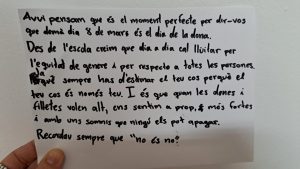 Avui pensam que és el moment perfecte per dir-vos
que demà dia 8 de març és el dia de la dona.
Des de l'escola creim que dia a dia cal lluitar per
l'equitat de gènere i per respecte a totes les persones.
sempre has d'estimar el teu cos perquè el
teu cos és només teu. I és que quan les dones i
filletes volen alt, ens sentim a prop, més fortes
i amb uns somnis que ningú els pot apagar.
Recordau sempre que "no és no".